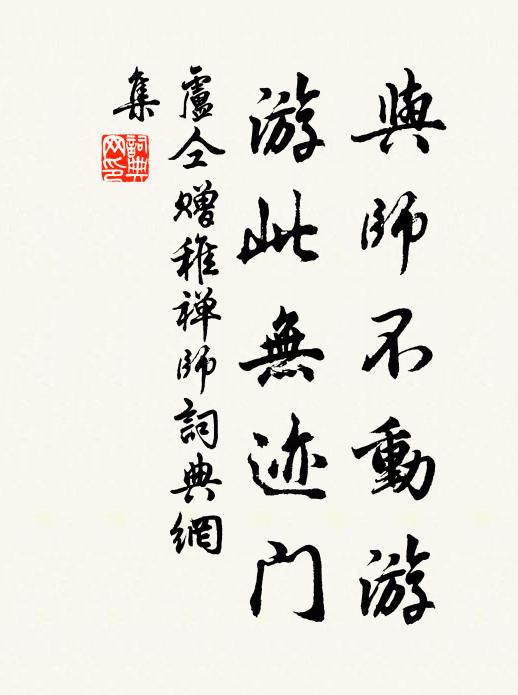 與師不動游
游此無迹门
盧仝贈稚禅師詞典網
集
詞典网印